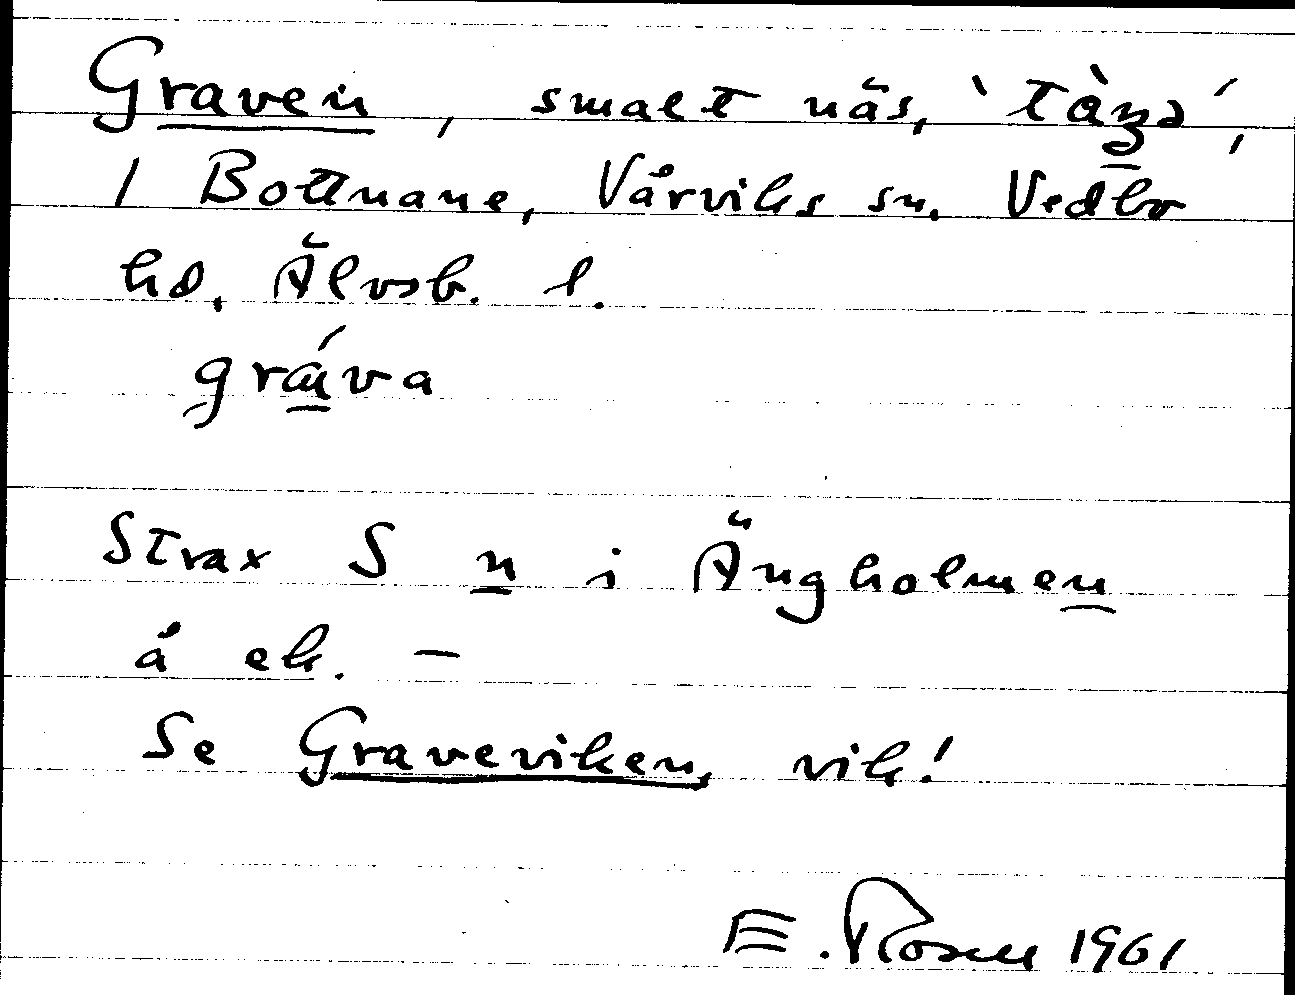 Graven, smalt näs, 'tàŋə',
i Bottnane, Vårviks sn. Vedbo
hd, Älvsb. l.
gráva
Strax S n i Ängholmen
å ek. –
Se Graveviken, vik!
E. Rosell 1961